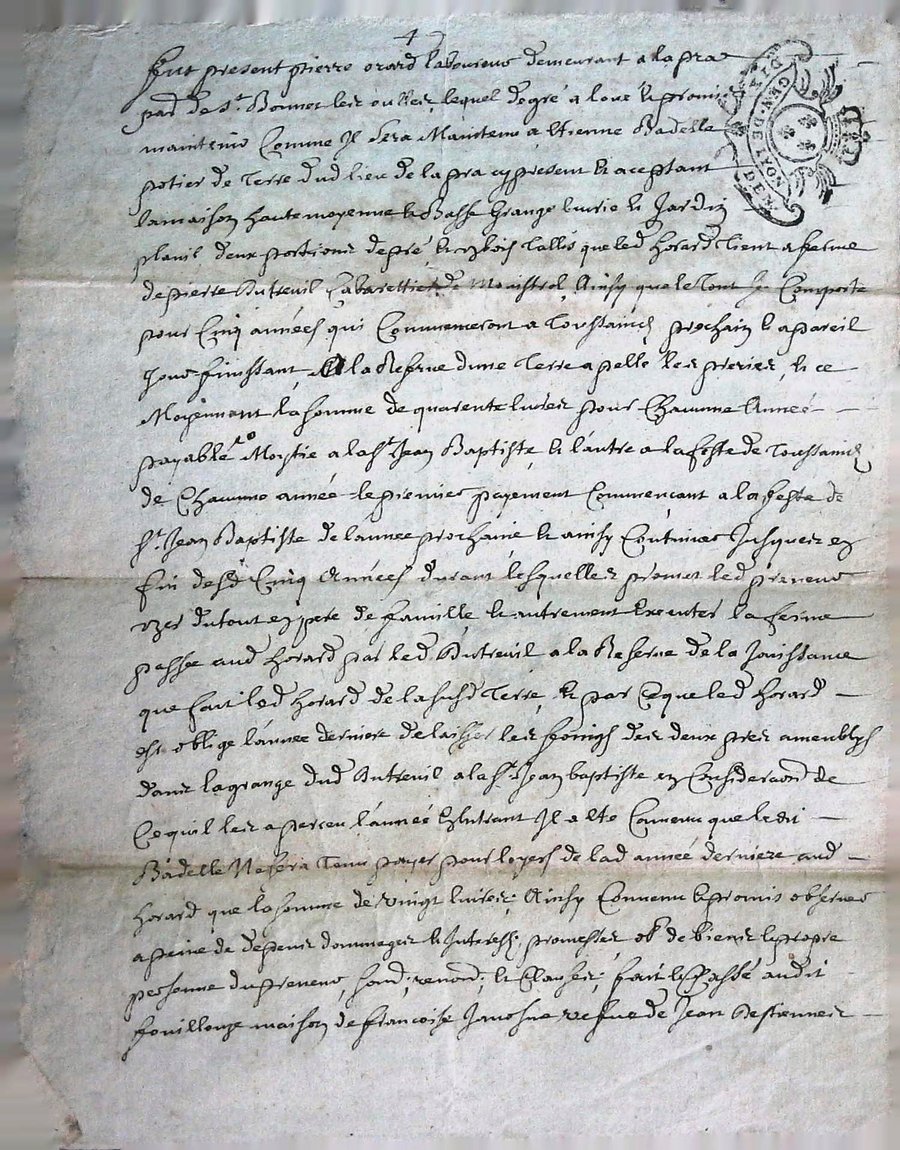 4
Fut present pierre orard laboureur demeurant a la pra
par. de St. Bonnet les oulles, lequel de gré a loué & promis
maintenir Comme Il sera Maintenu a Etienne Badelle
potier de Terre dud lieu de la pra cy present & aceptant
la maison haute moyenne & Basse Grange Ecurie & Jardin
deux portions de pré, & cy bois Tallis que led horard Tient a ferme
de pierre Dutreuil Cabarettier de Monistrol Ainsy que le tout se Comporte
pour Cinq années qui Commenceront a Toussainctz prochain & a pareil
Jour finissant, A la Reserve dune Terre apellé les preries, & ce
Moyennant la somme de quarente livres pour Chacune Année
payable Moytie a la St. Jean Baptiste & l'autre a la feste de Toussainctz
de Chacune année le premier payement Commencant a la feste de
St. Jean Baptiste de l'année prochaine & ainsy Continuer Jusques en
fin desd Cinq Années durant lesquelles promet led preneur
vzer du tout en pere de famille & autrement Executer la ferme
passée aud horard par led Dutreuil a la Reserve de la Jouissance
que fait led horard de la susd Terre, & par Ce que led horard
est oblige l'année derniere de laisser les foings des deux prez
dans la grange dud Dutreuil a la St. Jean baptiste en Consideraon de
Ce quil les a perceu l'année Entrant Il a ete Convenu que ledit
Badelle Ne sera Tenu payer pour loyers de lad année derniere aud
horard que la somme de vingt livres; Ainsy Convenu & promis observer
a peine de depens dommages & Interests, promesses, ob. de biens & propre
personne du preneur, renond; & Clauses; fait & Passé audit
fouillouze maison de francoise vefve de Jean
GEN. DE LYON
DEN.